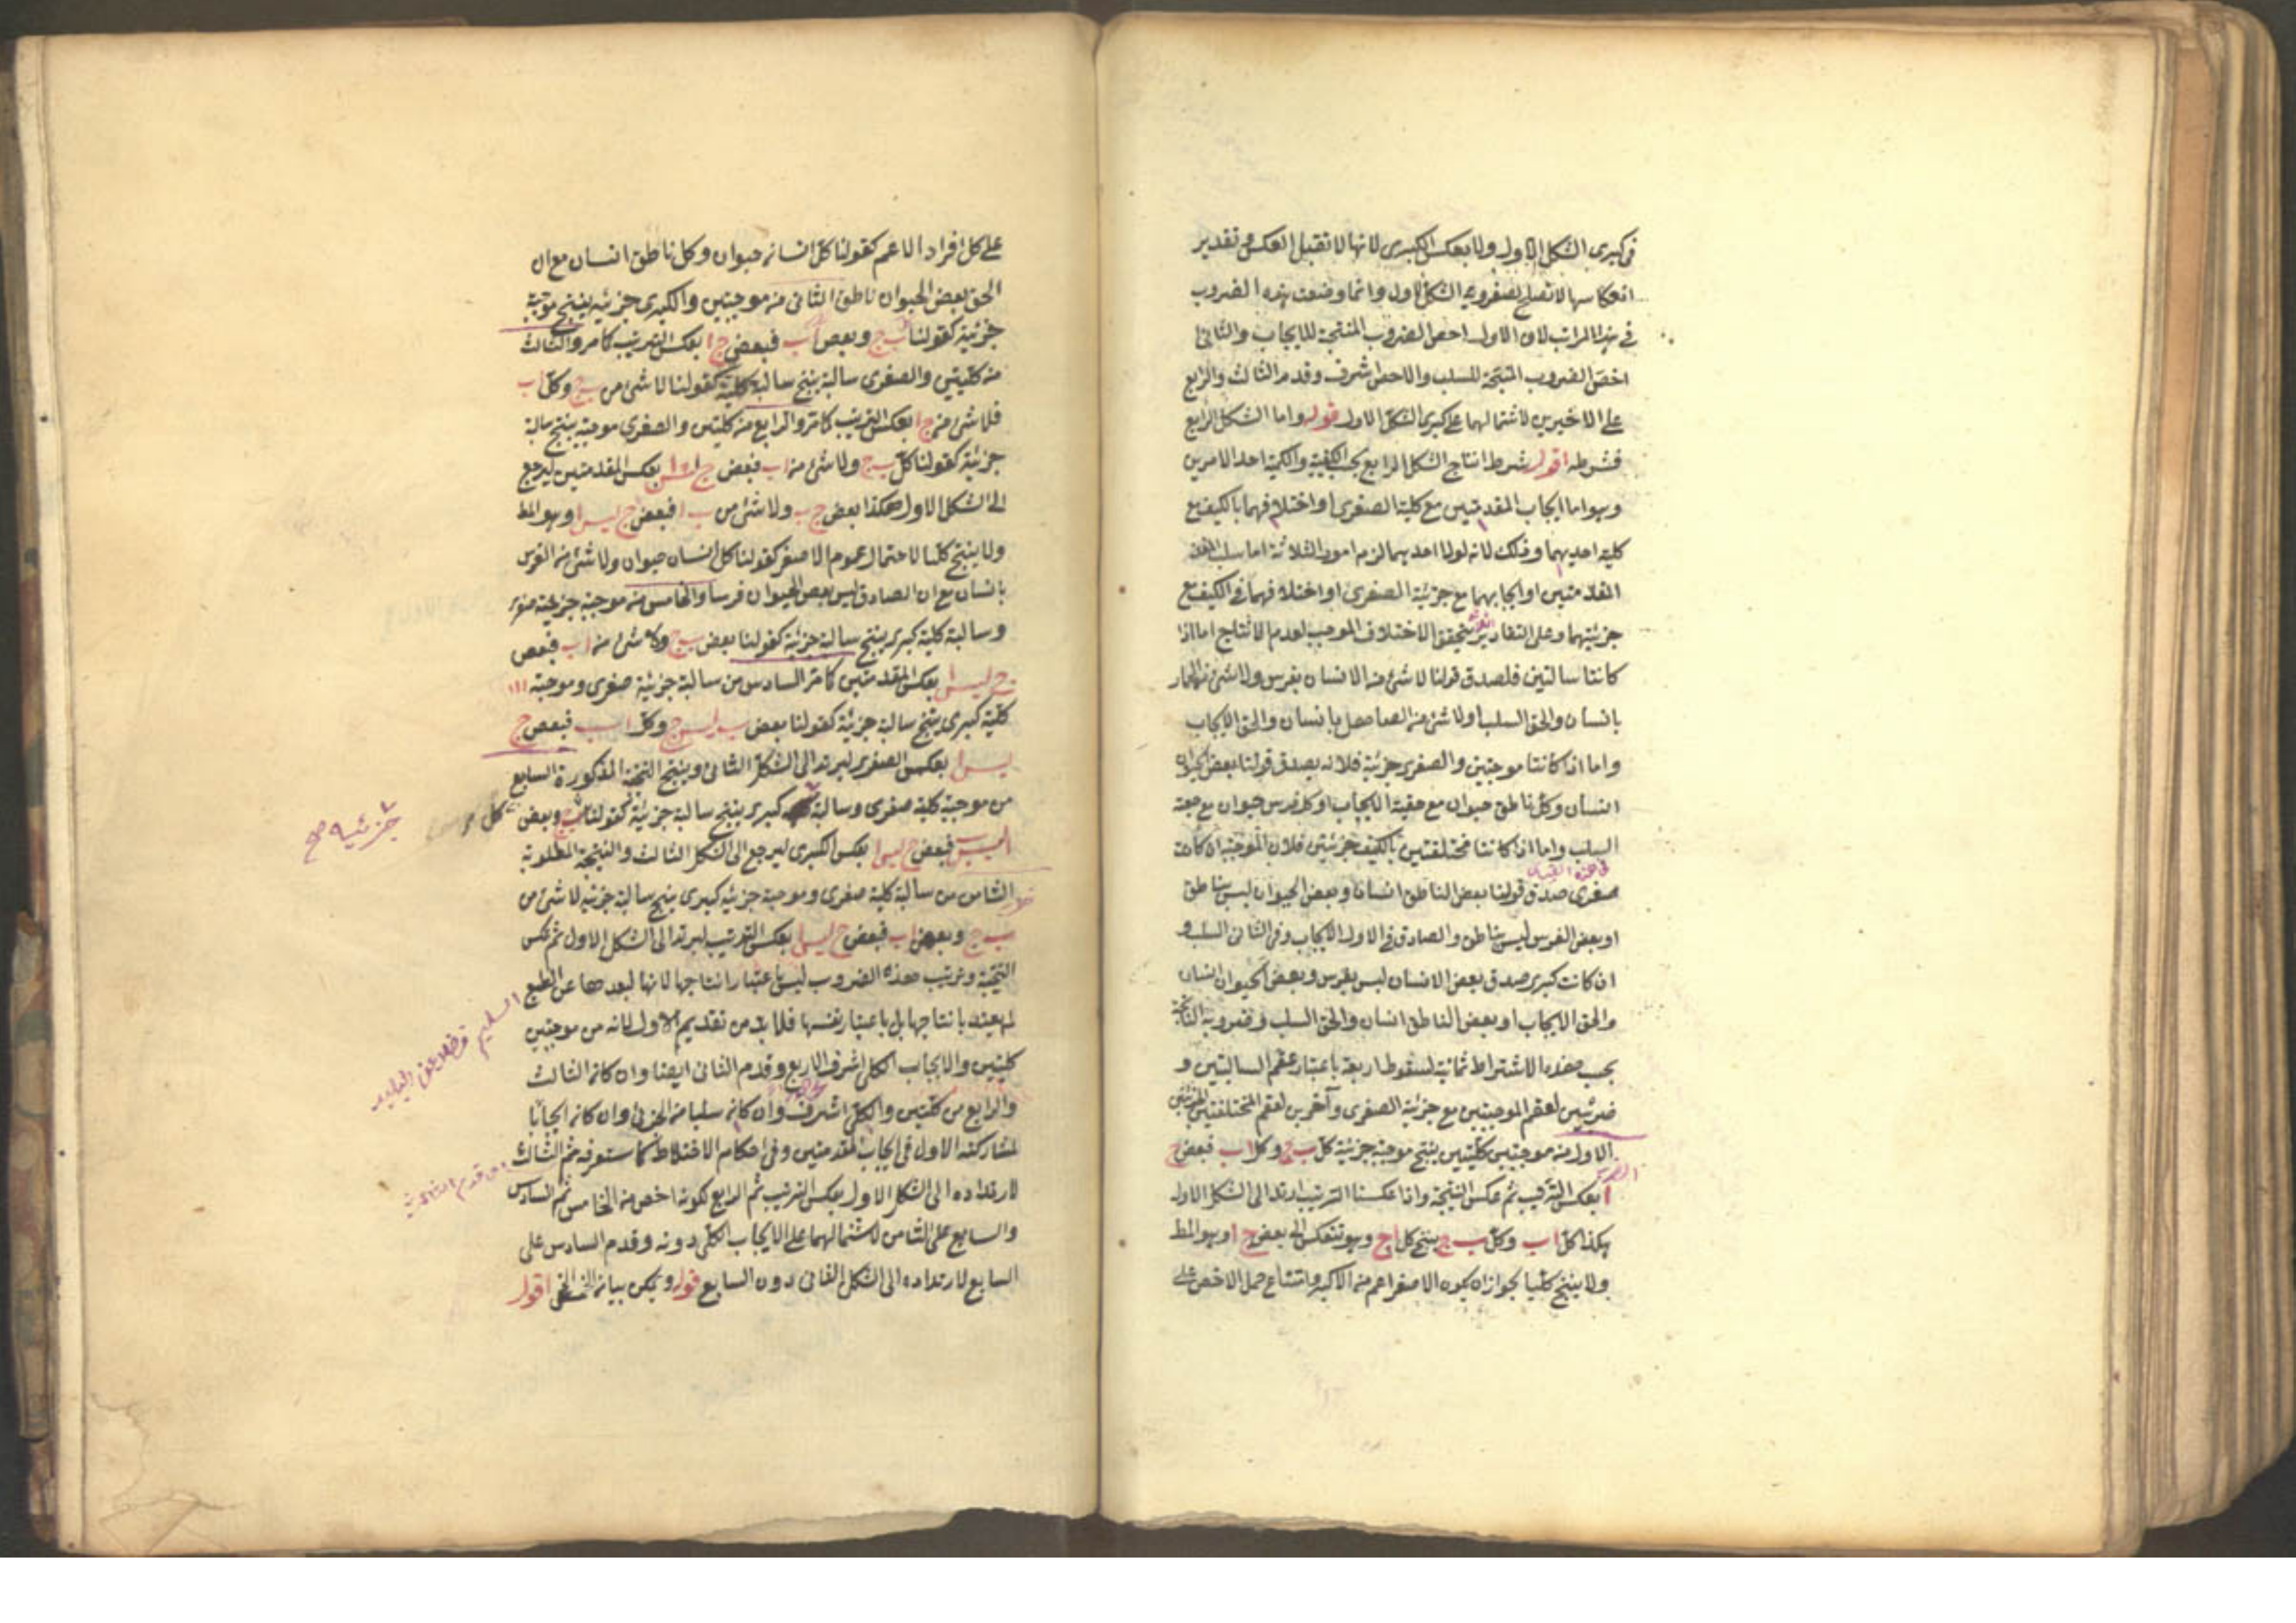 في كبرى الشكل الاول ولا بعكس الكبرى لانها لا تقبل العكس وتقدير
انعكاسها لا تصلح لصغروية الشكل الاول وانما وضعت هذه الضروب
في هذا المراتب لان الاول اخص الضروب المنتجة للايجاب والثاني
اخص الضروب المنتجة للسلب والاخص اشرف وقدم الثالث والرابع
على الاخيرين لاشتمالهما على كبرى الشكل الاول قوله واما الشكل الرابع
فشرطه اقول شرط انتاج الشكل الرابع بحسب الكيفية والكمية احد الامرين
وهو اما ايجاب المقدمتين مع كلية الصغرى او اختلافهما بالكيف مع
كلية احديهما وذلك لانه لولا احديهما لزم امور الثلاثة اما سلب
المقدمتين او ايجابهما مع جزئية الصغرى او اختلافهما في الكيف مع
جزئيتهما وعلى التقادير الثلاث يتحقق الاختلاف الموجب لعدم الانتاج اما اذا
كانتا سالبتين فلصدق قولنا لا شئ من الانسان بفرس ولا شئ من الحمار
بانسان والحق السلب او لا شئ من الصاهل بانسان والحق الايجاب
واما اذا كانتا موجبتين والصغرى جزئية فلانه يصدق قولنا بعض الحيوان
انسان وكل ناطق حيوان مع حقية الايجاب او كل فرس حيوان مع حقية
السلب واما اذا كانتا مختلفتين بالكيف جزئيتين فلان الموجبة ان كانت
صغرى صدق قولنا بعض الناطق انسان وبعض الحيوان ليس بناطق
او بعض الفرس ليس بناطق والصادق في الاول الايجاب وفي الثاني السلب و
ان كانت كبرى صدق بعض الانسان ليس بفرس وبعض الحيوان انسان
والحق الايجاب او بعض الناطق انسان والحق السلب وضروبه الناتجة
بحسب هذه الاشتراط ثمانية لسقوط اربعة باعتبار عقم السالبتين و
ضربين لعقم الموجبتين مع جزئية الصغرى وآخرين لعقم المختلفتين الجزئيتين
الاول من موجبتين كليتين ينتج موجبة جزئية كل ب ج وكل ا ب فبعض ج
ا بعكس الترتيب ثم عكس النتيجة واذا عكسنا الترتيب ارتد الى الشكل الاول
هكذا كل ا ب وكل ب ج ينتج كل ا ج وهو تنعكس الى بعض ج ا وهو المط
ولا ينتج كليا لجواز ان يكون الاصغر اعم من الاكبر وامتناع حمل الاخص على
على كل افراد الاعم كقولنا كل انسان حيوان وكل ناطق انسان مع ان
الحق بعض الحيوان ناطق الثاني من موجبتين والكبرى جزئية ينتج موجبة
جزئية كقولنا كل ب ج وبعض ا ب فبعض ج ا بعكس الترتيب كما مر والثالث
من كليتين والصغرى سالبة ينتج سالبة كلية كقولنا لا شئ من ب ج وكل ا ب
فلا شئ من ج ا بعكس الترتيب كما مر والرابع من كليتين والصغرى موجبة ينتج سالبة
جزئية كقولنا كل ب ج ولا شئ من ا ب فبعض ج ليس ا بعكس المقدمتين ليرجع
الى الشكل الاول هكذا بعض ج ب ولا شئ من ب ا فبعض ج ليس ا وهو المط
ولا ينتج كليا لاحتمال عموم الاصغر كقولنا كل انسان حيوان ولا شئ من الفرس
بانسان مع ان الصادق ليس بعض الحيوان فرسا والخامس من موجبة جزئية صغرى
وسالبة كلية كبرى ينتج سالبة جزئية كقولنا بعض ب ج ولا شئ من ا ب فبعض
ج ليس ا بعكس المقدمتين كما مر السادس من سالبة جزئية صغرى وموجبة
كلية كبرى ينتج سالبة جزئية كقولنا بعض ب ليس ج وكل ا ب فبعض ج
ليس ا بعكس الصغرى ليرتد الى الشكل الثاني وينتج النتيجة المذكورة السابع
من موجبة كلية صغرى وسالبة كبرى ينتج سالبة جزئية كقولنا كل ب ج وبعض
جزئية صح
ا ليس ب فبعض ج ليس ا بعكس الكبرى ليرجع الى الشكل الثالث والنتيجة المطلوبة
الثامن من سالبة كلية صغرى وموجبة جزئية كبرى ينتج سالبة جزئية لا شئ من
ب ج وبعض ا ب فبعض ج ليس ا بعكس الترتيب ليرتد الى الشكل الاول ثم عكس
النتيجة وترتيب هذه الضروب ليس باعتبار انتاجها لانها لبعدها عن الطبع
لم يعتد بانتاجها بل باعتبار نفسها فلا بد من تقديم الاول لانه من موجبتين
كليتين والايجاب الكلي اشرف الاربع وقدم الثاني ايضا وان كان الثالث
والرابع من كليتين والكلي اشرف وان كان سلبا من الجزئي وان كان ايجابا
لمشاركته الاول في ايجاب المقدمتين وفي احكام الاختلاط كما ستعرفه ثم الثالث
لارتداده الى الشكل الاول بعكس الترتيب ثم الرابع لكونه اخص من الخامس ثم السادس
والسابع على الثامن لاشتمالهما على الايجاب الكلي دونه وقدم السادس على
السابع لارتداده الى الشكل الثاني دون السابع قوله ويمكن بيانه الخ اقول